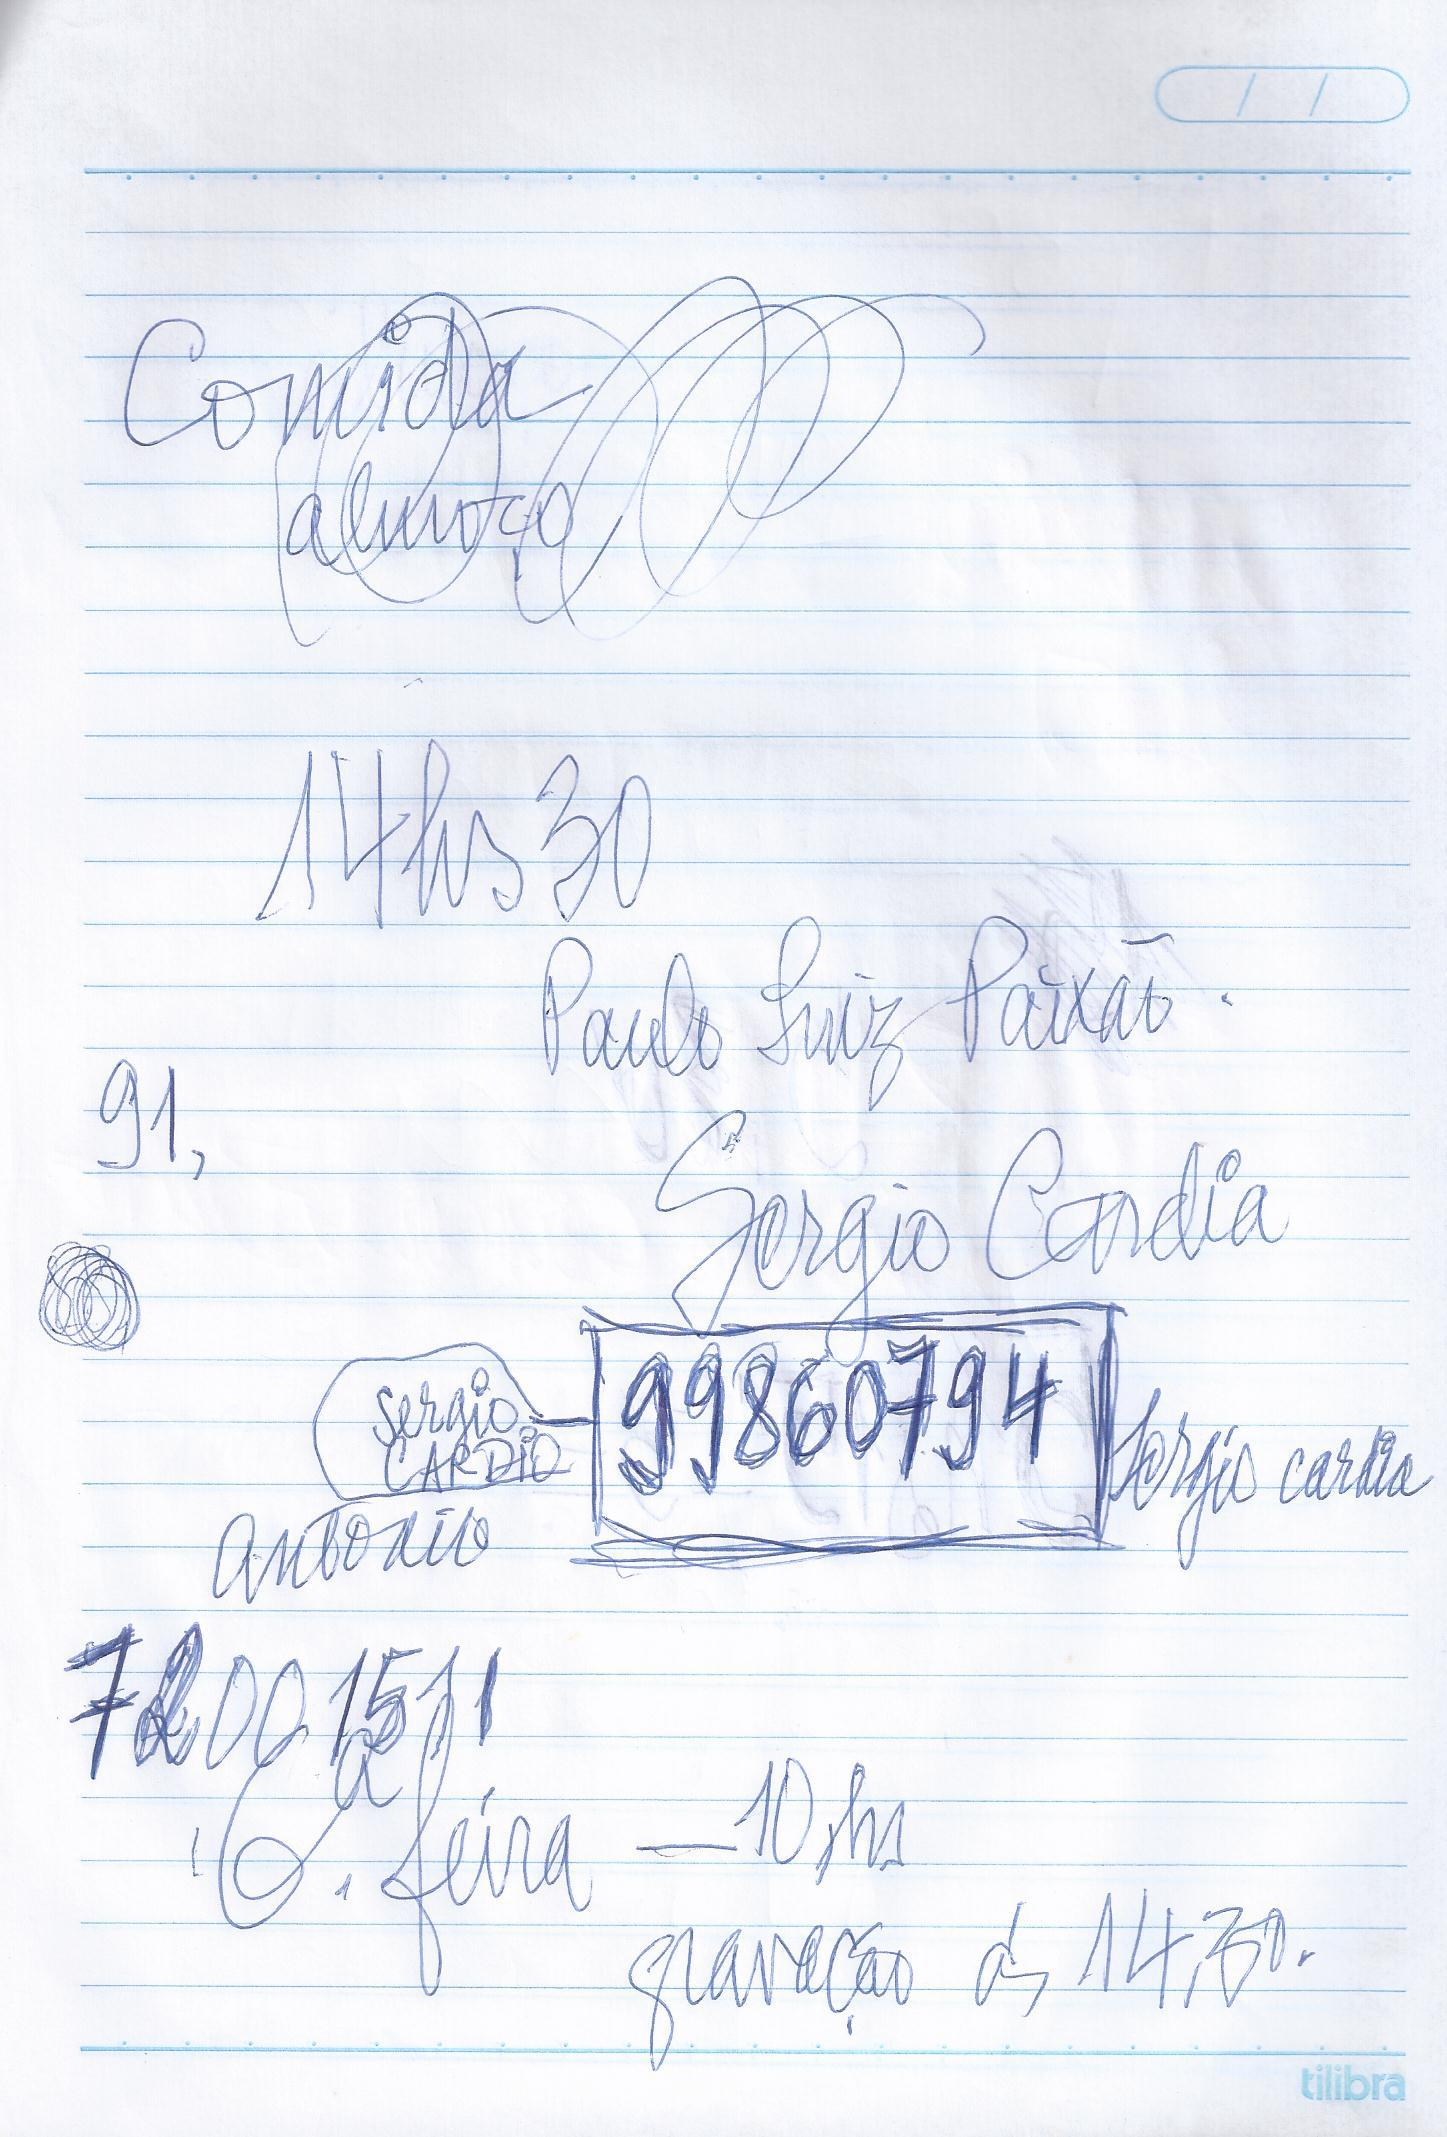 / /
Comida
almoço
14hs 30
Paulo Luiz Paixão.
91,
Sergio Cardia
sergio
CARDIO
99860794
Sergio cardia
antonio
72001511
6.ª feira — 10,hs
gravação ás 14,30.
tilibra